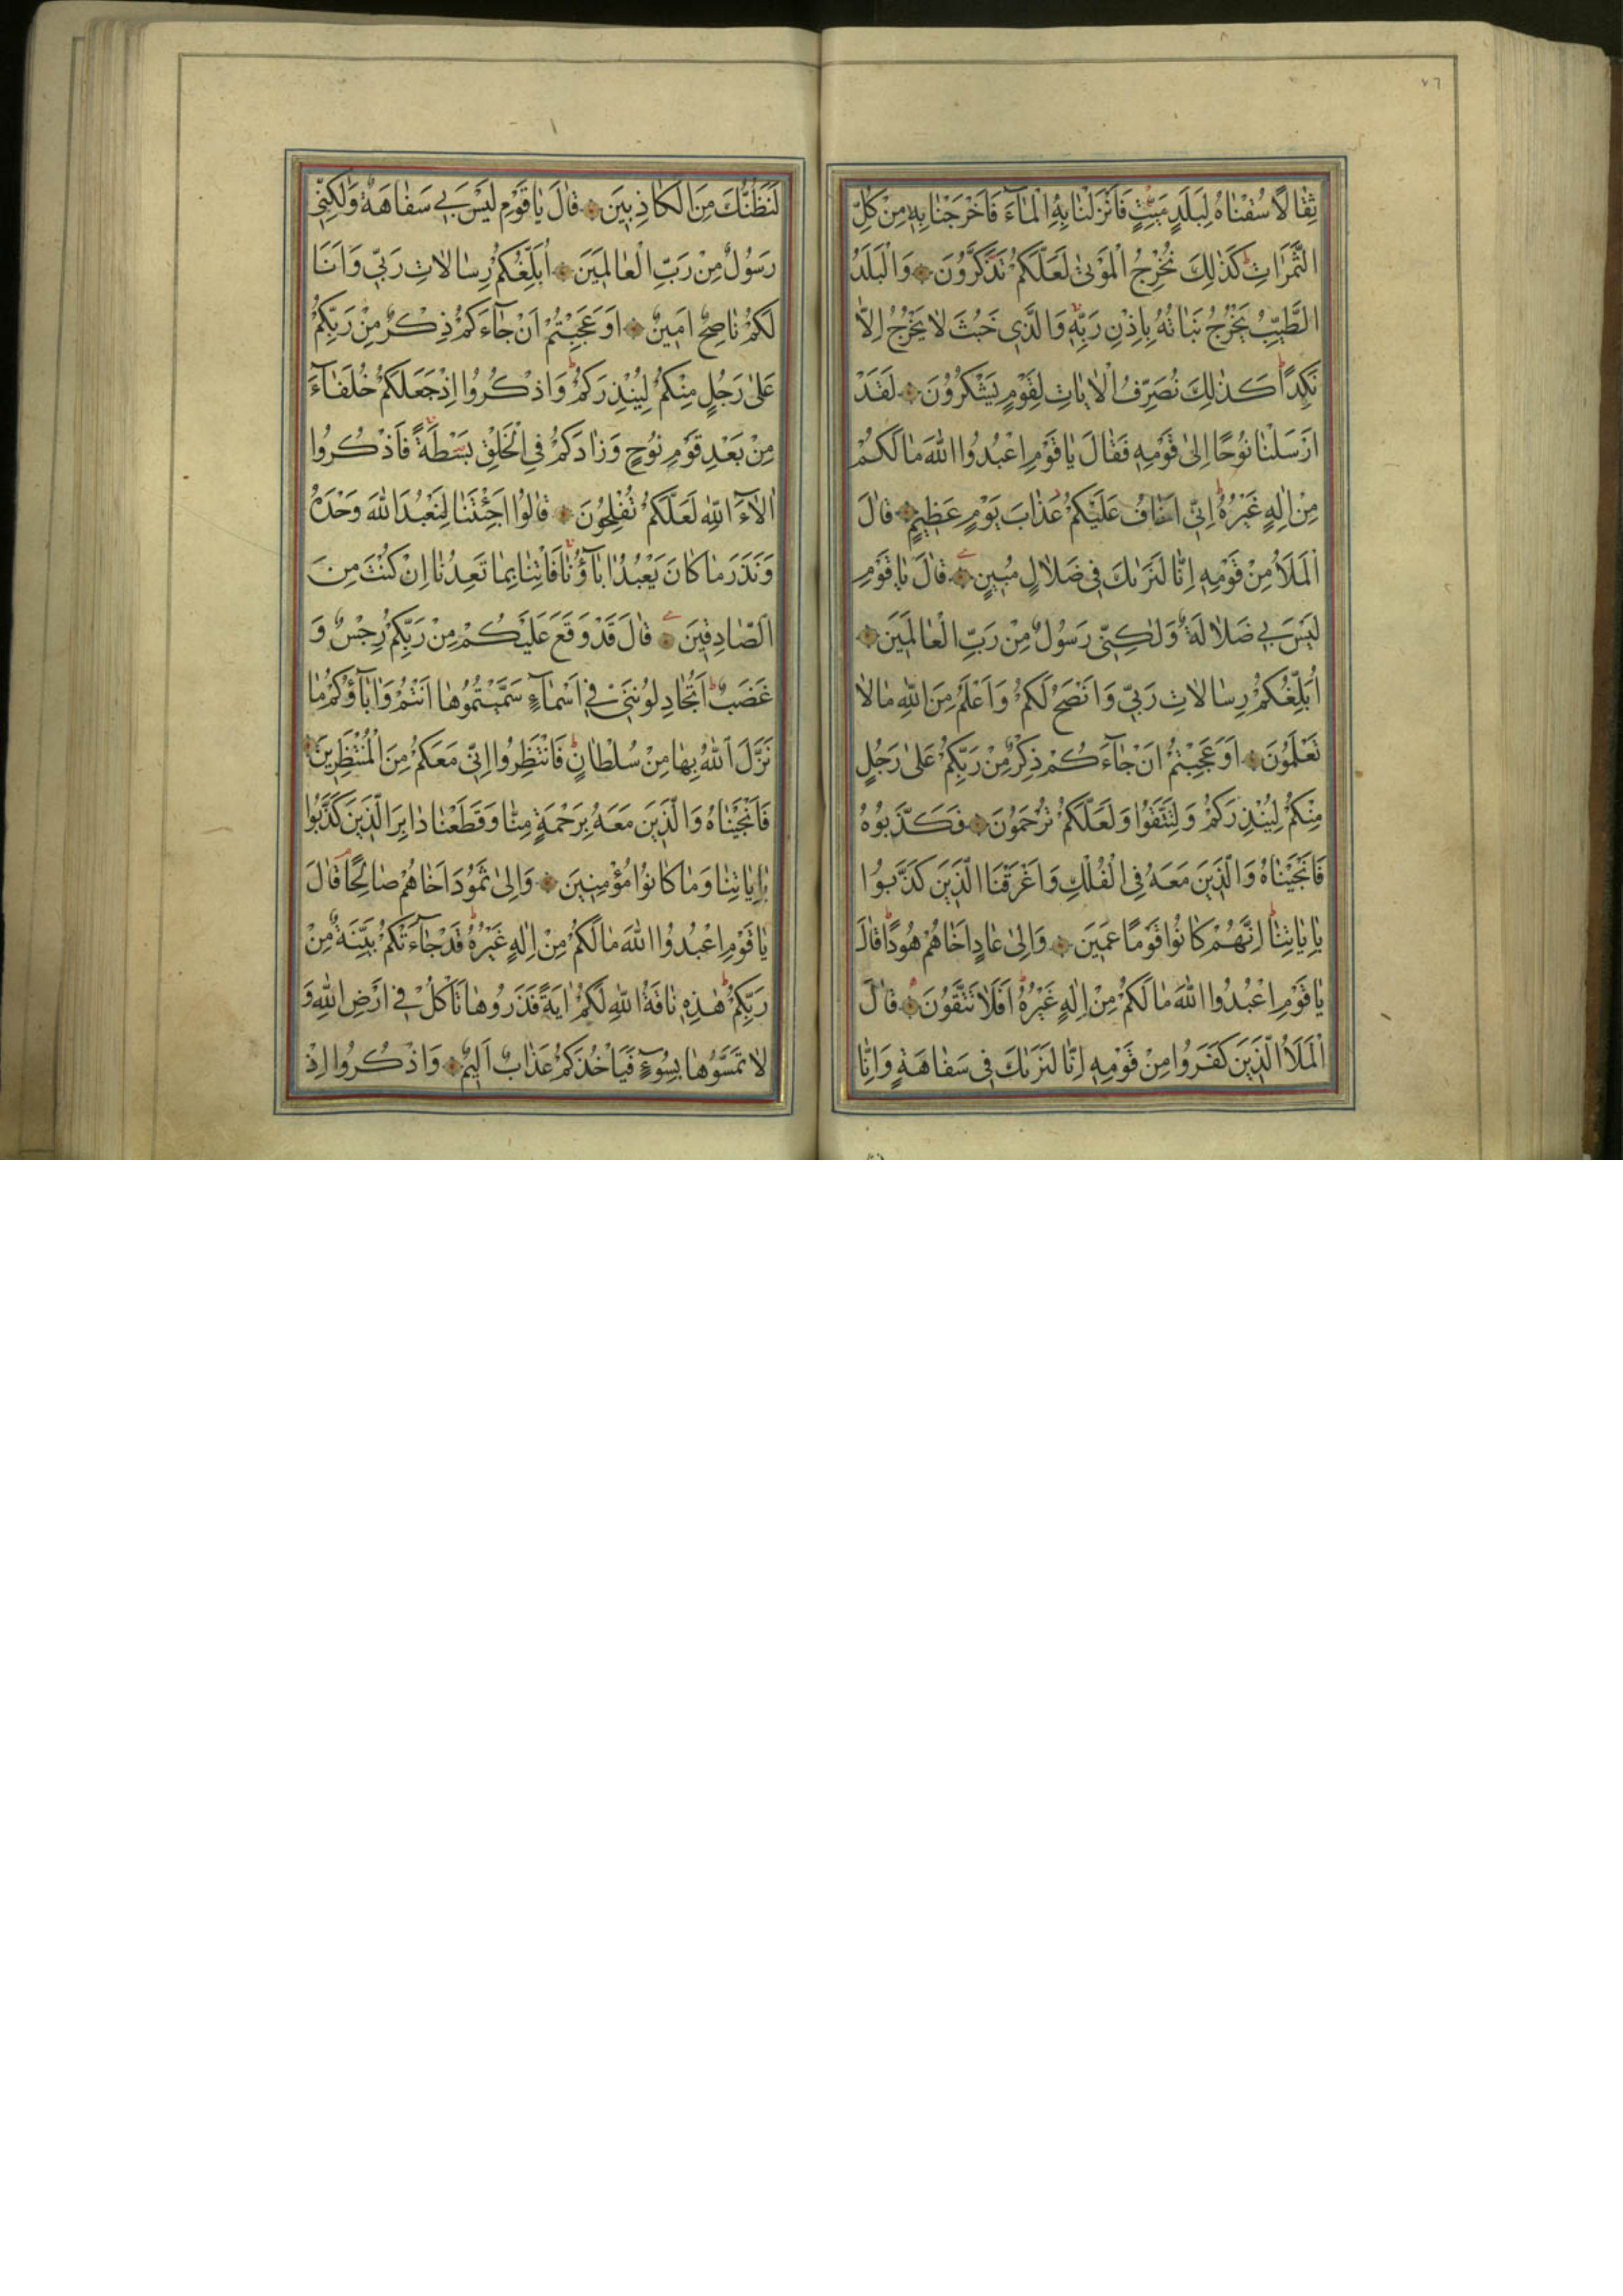 ٧٦
ثِقَالًا سُقْنَاهُ لِبَلَدٍ مَيِّتٍ فَاَنْزَلْنَا بِهِ الْمَآءَ فَاَخْرَجْنَا بِهِ مِنْ كُلِّ
الثَّمَرَاتِ كَذٰلِكَ نُخْرِجُ الْمَوْتٰى لَعَلَّكُمْ تَذَكَّرُونَ وَالْبَلَدُ
الطَّيِّبُ يَخْرُجُ نَبَاتُهُ بِاِذْنِ رَبِّهِ وَالَّذِي خَبُثَ لَا يَخْرُجُ اِلَّا
نَكِدًا كَذٰلِكَ نُصَرِّفُ الْاٰيَاتِ لِقَوْمٍ يَشْكُرُونَ لَقَدْ
اَرْسَلْنَا نُوحًا اِلٰى قَوْمِهِ فَقَالَ يَا قَوْمِ اعْبُدُوا اللّٰهَ مَا لَكُمْ
مِنْ اِلٰهٍ غَيْرُهُ اِنِّي اَخَافُ عَلَيْكُمْ عَذَابَ يَوْمٍ عَظِيمٍ قَالَ
الْمَلَاُ مِنْ قَوْمِهِ اِنَّا لَنَرٰيكَ فِي ضَلَالٍ مُبِينٍ قَالَ يَا قَوْمِ
لَيْسَ بِي ضَلَالَةٌ وَلٰكِنِّي رَسُولٌ مِنْ رَبِّ الْعَالَمِينَ
اُبَلِّغُكُمْ رِسَالَاتِ رَبِّي وَاَنْصَحُ لَكُمْ وَاَعْلَمُ مِنَ اللّٰهِ مَا لَا
تَعْلَمُونَ اَوَعَجِبْتُمْ اَنْ جَآءَكُمْ ذِكْرٌ مِنْ رَبِّكُمْ عَلٰى رَجُلٍ
مِنْكُمْ لِيُنْذِرَكُمْ وَلِتَتَّقُوا وَلَعَلَّكُمْ تُرْحَمُونَ فَكَذَّبُوهُ
فَاَنْجَيْنَاهُ وَالَّذِينَ مَعَهُ فِي الْفُلْكِ وَاَغْرَقْنَا الَّذِينَ كَذَّبُوا
بِاٰيَاتِنَا اِنَّهُمْ كَانُوا قَوْمًا عَمِينَ وَاِلٰى عَادٍ اَخَاهُمْ هُودًا قَالَ
يَا قَوْمِ اعْبُدُوا اللّٰهَ مَا لَكُمْ مِنْ اِلٰهٍ غَيْرُهُ اَفَلَا تَتَّقُونَ قَالَ
الْمَلَاُ الَّذِينَ كَفَرُوا مِنْ قَوْمِهِ اِنَّا لَنَرٰيكَ فِي سَفَاهَةٍ وَاِنَّا
لَنَظُنُّكَ مِنَ الْكَاذِبِينَ قَالَ يَا قَوْمِ لَيْسَ بِي سَفَاهَةٌ وَلٰكِنِّي
رَسُولٌ مِنْ رَبِّ الْعَالَمِينَ اُبَلِّغُكُمْ رِسَالَاتِ رَبِّي وَاَنَا
لَكُمْ نَاصِحٌ اَمِينٌ اَوَعَجِبْتُمْ اَنْ جَآءَكُمْ ذِكْرٌ مِنْ رَبِّكُمْ
عَلٰى رَجُلٍ مِنْكُمْ لِيُنْذِرَكُمْ وَاذْكُرُوا اِذْ جَعَلَكُمْ خُلَفَآءَ
مِنْ بَعْدِ قَوْمِ نُوحٍ وَزَادَكُمْ فِي الْخَلْقِ بَسْطَةً فَاذْكُرُوا
اٰلَآءَ اللّٰهِ لَعَلَّكُمْ تُفْلِحُونَ قَالُوا اَجِئْتَنَا لِنَعْبُدَ اللّٰهَ وَحْدَهُ
وَنَذَرَ مَا كَانَ يَعْبُدُ اٰبَآؤُنَا فَاْتِنَا بِمَا تَعِدُنَا اِنْ كُنْتَ مِنَ
الصَّادِقِينَ قَالَ قَدْ وَقَعَ عَلَيْكُمْ مِنْ رَبِّكُمْ رِجْسٌ وَ
غَضَبٌ اَتُجَادِلُونَنِي فِي اَسْمَآءٍ سَمَّيْتُمُوهَا اَنْتُمْ وَاٰبَآؤُكُمْ مَا
نَزَّلَ اللّٰهُ بِهَا مِنْ سُلْطَانٍ فَانْتَظِرُوا اِنِّي مَعَكُمْ مِنَ الْمُنْتَظِرِينَ
فَاَنْجَيْنَاهُ وَالَّذِينَ مَعَهُ بِرَحْمَةٍ مِنَّا وَقَطَعْنَا دَابِرَ الَّذِينَ كَذَّبُوا
بِاٰيَاتِنَا وَمَا كَانُوا مُؤْمِنِينَ وَاِلٰى ثَمُودَ اَخَاهُمْ صَالِحًا قَالَ
يَا قَوْمِ اعْبُدُوا اللّٰهَ مَا لَكُمْ مِنْ اِلٰهٍ غَيْرُهُ قَدْ جَآءَتْكُمْ بَيِّنَةٌ مِنْ
رَبِّكُمْ هٰذِهِ نَاقَةُ اللّٰهِ لَكُمْ اٰيَةً فَذَرُوهَا تَاْكُلْ فِي اَرْضِ اللّٰهِ وَ
لَا تَمَسُّوهَا بِسُوءٍ فَيَاْخُذَكُمْ عَذَابٌ اَلِيمٌ وَاذْكُرُوا اِذْ